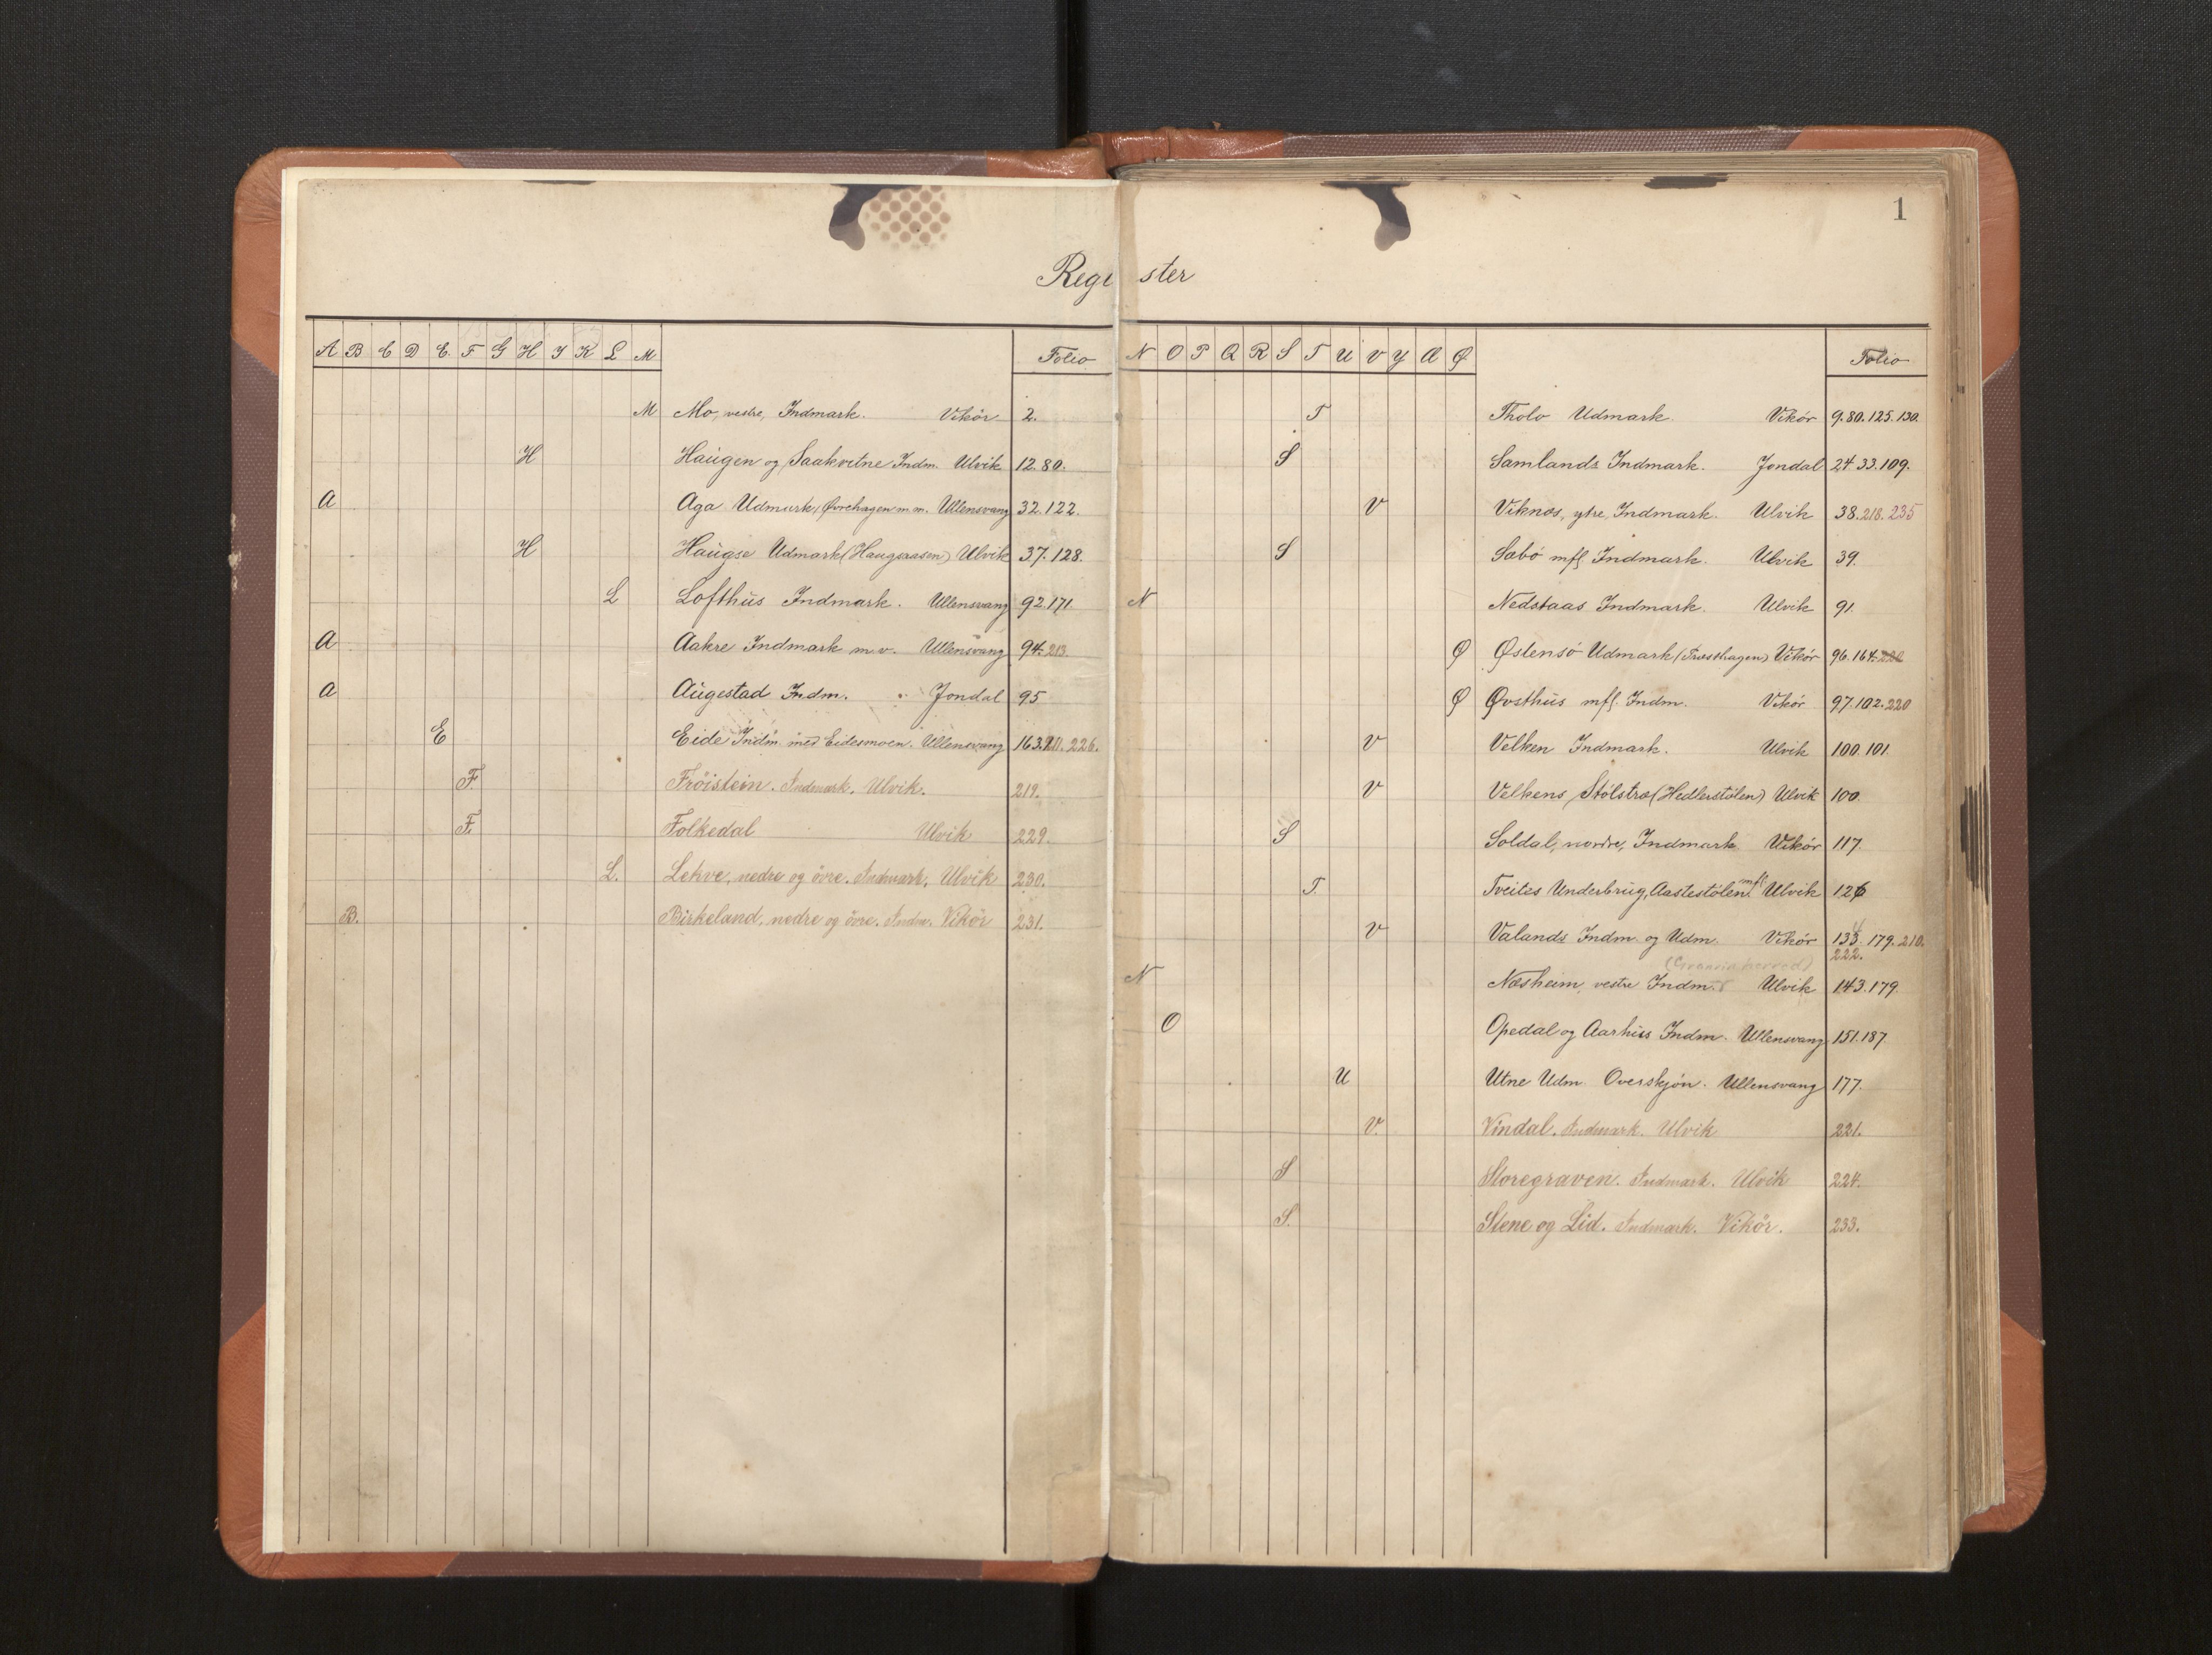 1
Register
A B C D E F G H I K L M Folio
M Mo, vestre, Indmark. Vikör 2.
H Haugen og Saakvitne Indm. Ulvik 12.80.
A Aga Udmark, Øvrehagen m.m. Ullensvang 32.122.
H Haugse Udmark (Haugsaasen) Ulvik 37.128.
L Lofthus Indmark. Ullensvang 92.171.
A Aakre Indmark m.v. Ullensvang 94.213.
A Augestad Indm. Jondal 95
E Eide Indm. med Eidesmoen. Ullensvang 163.211.226.
F. Fröistein. Indmark. Ulvik. 219.
F. Folkedal Ulvik 229.
L. Lekve, nedre og övre. Indmark, Ulvik 230.
B. Birkeland, nedre og övre. Indm. Vikör 231.
N O P Q R S T U V Y Æ Ø Folio
T Tholo Udmark. Vikör 9.80.125.130.
S Samlands Indmark. Jondal 24.33.109.
V Viknæs, ytre, Indmark. Ulvik 38.218.235
S Sæbö mfl Indmark. Ulvik 39.
N Nedstaas Indmark. Ulvik 91.
Ø Østensö Udmark (Træsthagen) Vikör 96.164.
Ø Øvsthus mfl. Indm. Vikör 97.102.220
V Velken Indmark. Ulvik 100.101.
V Velkens Stölstræ (Hedlerstölen) Ulvik 100.
S Soldal, nordre, Indmark Vikör 117.
T. Tveites Underbrug, Aastestölen mfl. Ulvik 126
V Valands Indm. og Udm. Vikör 134.179.210.
222.
(Granvin herred)
N Næsheim, vestre Indm. Ulvik 143.179.
O Opedal og Aarhus Indm. Ullensvang 151.187
U Utne Udm. Overskjön. Ullensvang 177.
V. Vindal. Indmark. Ulvik 221.
S Storegraven. Indmark. Ulvik 224.
S. Stene og Lid. Indmark. Vikör. 233.